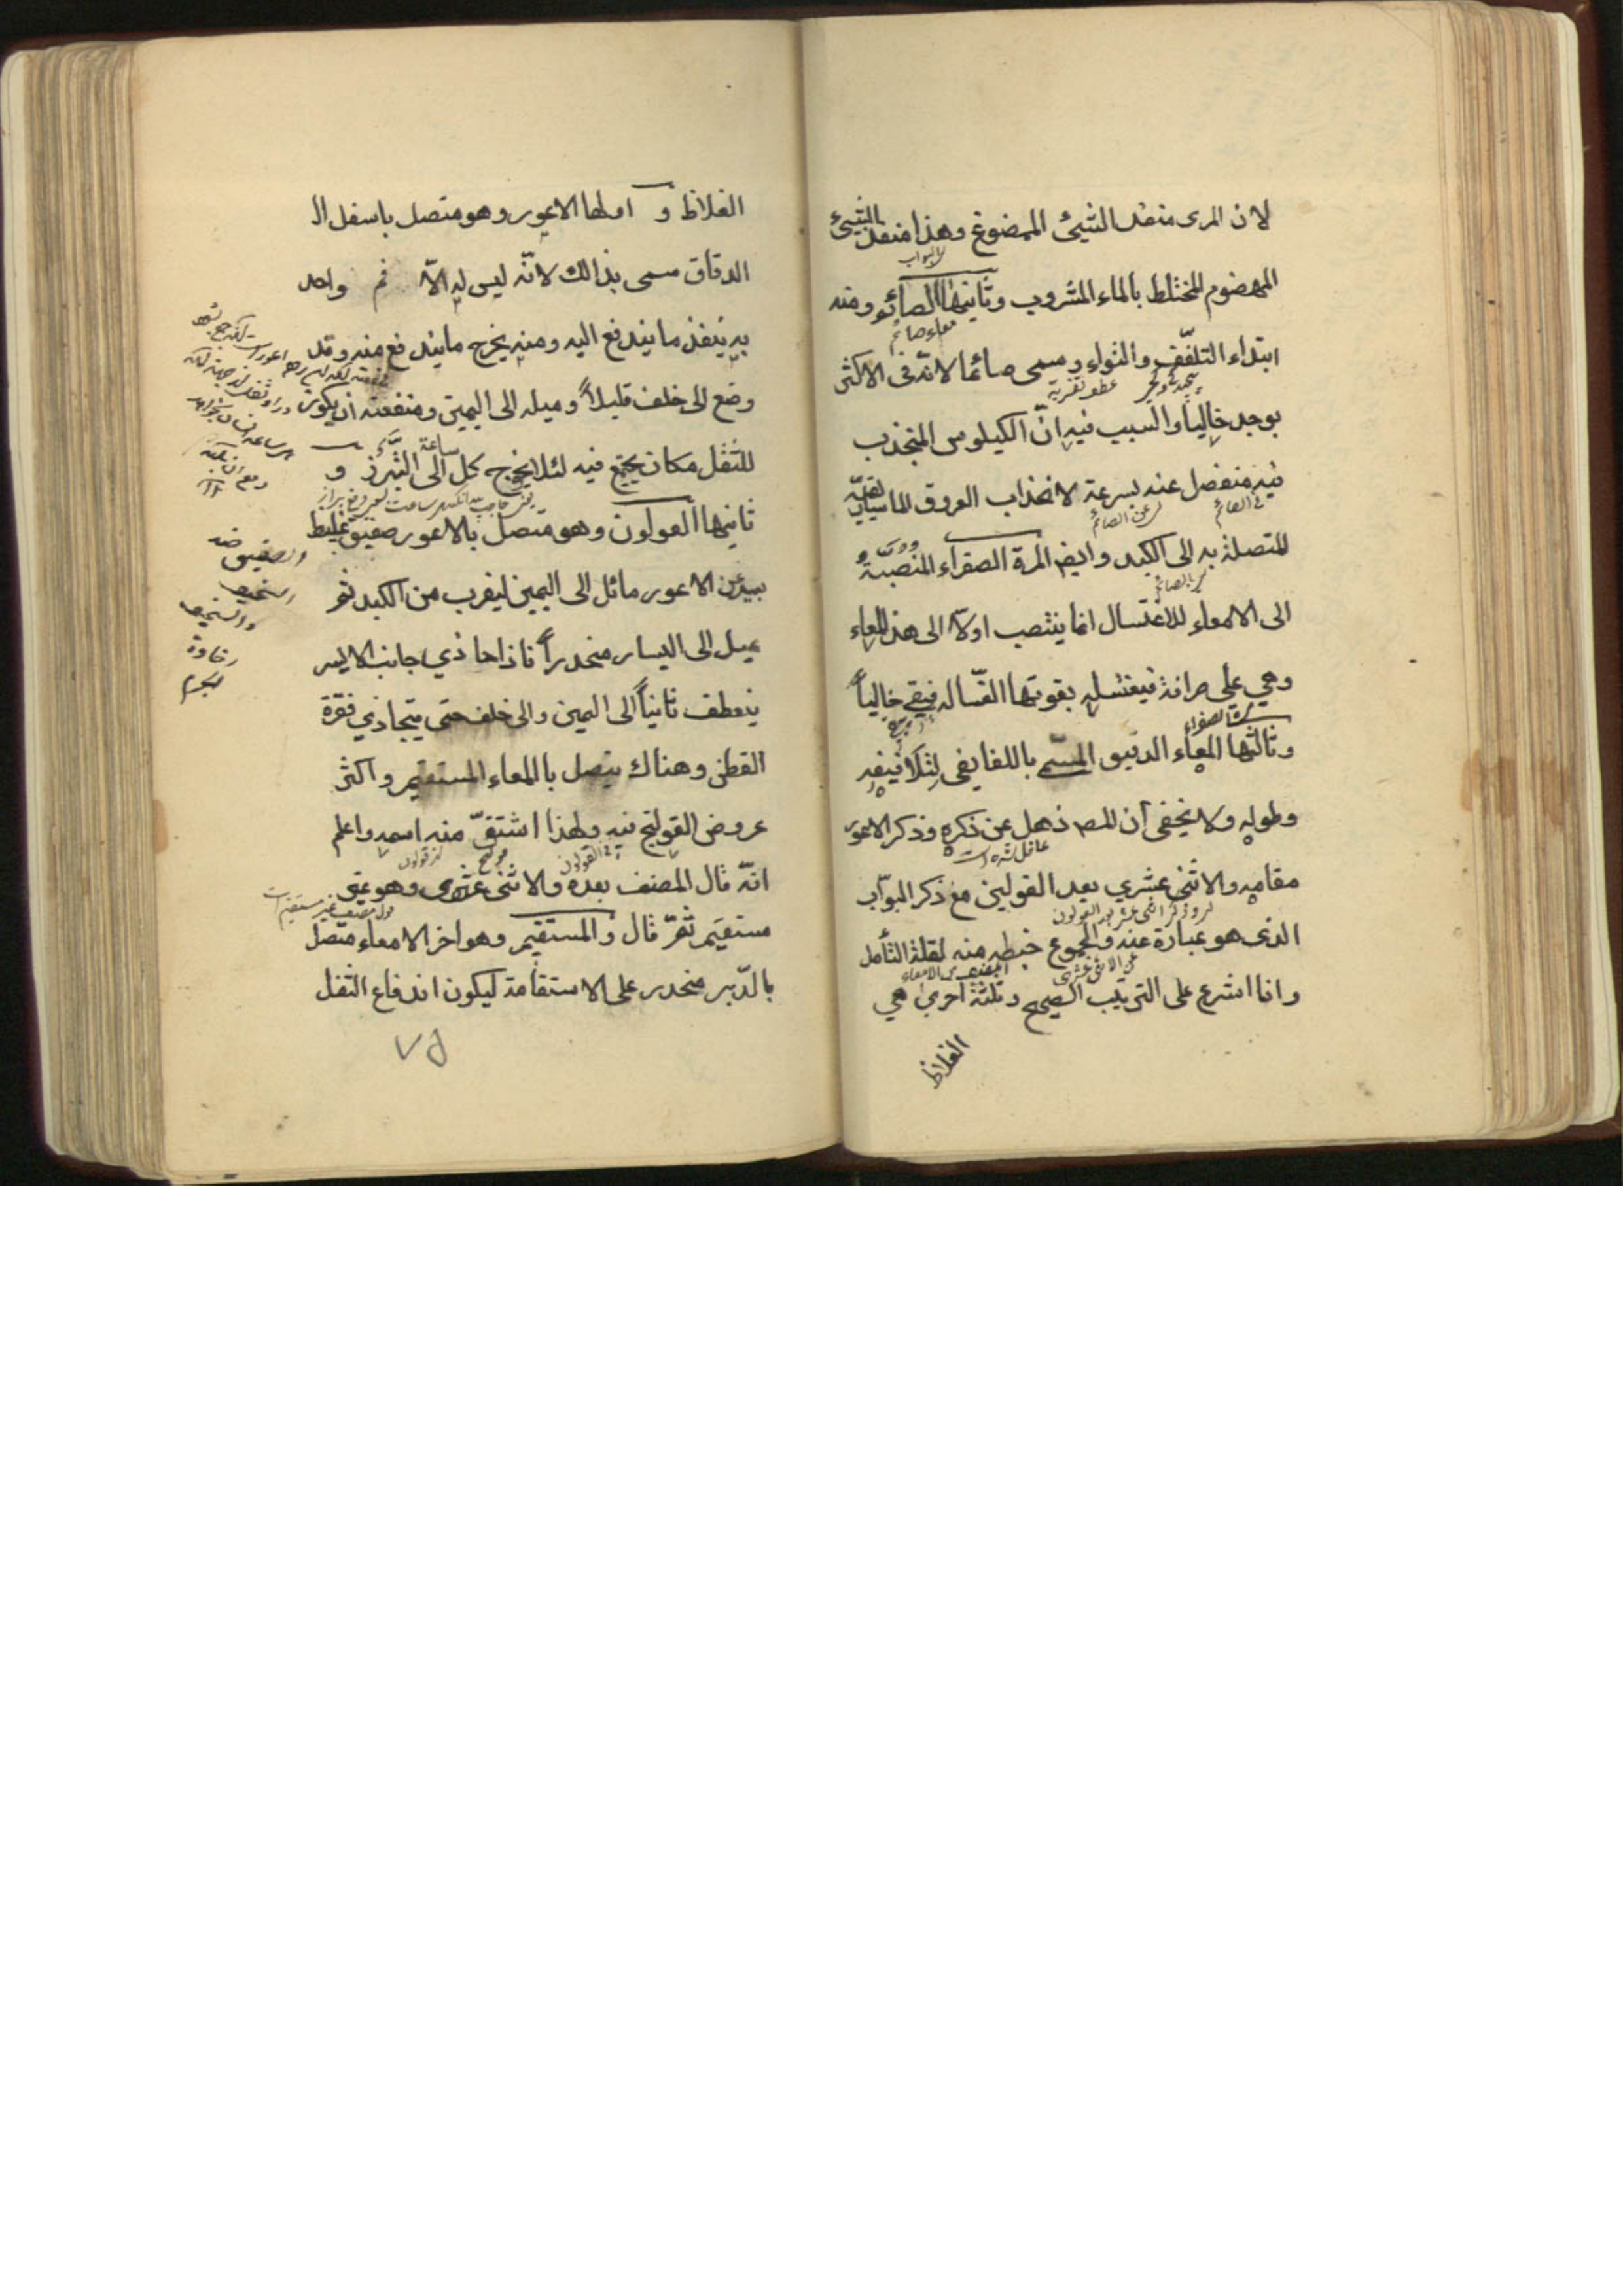 لان المرى منفذ الشيئ الممضوغ وهذا منفذ الشيئ
اى البواب
المهضوم المختلط بالماء المشروب وثانيها الصائم ومنه
معاء صائم
ابتداء التلفف والتواء ويسمى صائما لانه فى الاكثر
يوجد خاليا والسبب فيه انّ الكيلوس المنجذب
فيه منفصل عنه بسرعة لانجذاب العروق الماسارىقيّه
فى الصائم
اى عن الصائم
المتصلة به الى الكبد وايضا المرة الصفراء المنصبّة
اى بالصائم
الى الامعاء للاغتسال انما ينصب اولا الى هذا المعاء
وهي على صرافة فيغسله بقوتها الغسّاله فيبقى خالياً
اى الصفراء
وثالثها المعاء الدقيق المسمى باللفايفى لتلافيفه
وطوله ولا يخفى ان المصـ ذهل عن ذكره وذكر الاعور
غافل شده است
مقامه والاثنى عشري بعد القولينج مع ذكر البوّاب
الذى هو عبارة عنه والمجموع خبط منه لقلة التأمل
عن الاثنى عشرى
وانا اشرع على الترتيب الصحيح وثلثة اخرى هي
الغلاظ
الغلاظ و اولها الاعور وهو متصل باسفل الـ
الدقاق سمى بذالك لانّه ليس له الاّ فم واحد
به ينفذ ما يندفع اليه ومنه يخرج ما يندفع منه وقد
وضع الى خلف قليلاً وميله الى اليمين ومنفعته ان يكون
للثفل مكان يجتمع فيه لئلا يخرج كل ساعة الى التبرّز و
ثانيها القولون وهو متصل بالاعور صفيق غليظ
يبتدئ من الاعور مائل الى اليمين ليقرب من الكبد ثم
يميل الى اليسار منحدراً فاذا حاذي جانب الايسر
ينعطف ثانياً الى اليمين والى خلف حتى يحاذي فقرة
القطن وهناك يتصل بالمعاء المستقيم واكثر
عروض القولنج فيه ولهذا اشتقّ منه اسمه واعلم
فى القولون
انّه قال المصنف بعده والاثنى عشرى وهو غير
مستقيم ثمّ قال والمستقيم وهو اخر الامعاء متصل
بالدّبر منحدر على الاستقامة ليكون اندفاع الثفل
والصفيق ضد
السخيف
والسخيف
رخاوة
الجسم
٧٥